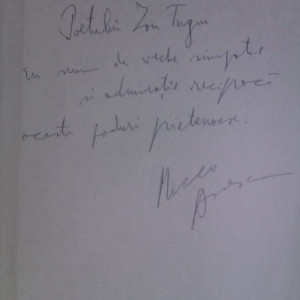 Poetului Ion
En semn de veche simpatie
si admiratie reciprocă
aceste rânduri prietenoase.